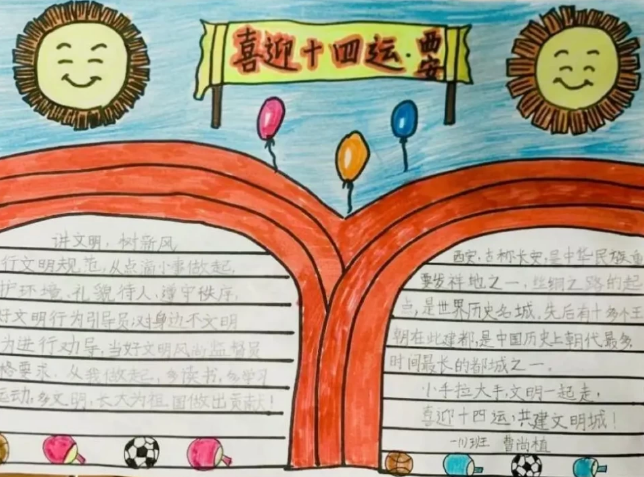 喜迎十四运·西安
讲文明，树新风
行文明规范，从点滴小事做起，
护环境、礼貌待人，遵守秩序，
好文明行为引导员；对身边不文明
为进行劝导，当好文明风尚监督员
修要求，从我做起，多读书，多学习
运动，多文明，长大为祖国做出贡献！
西安，古称长安，是中华民族重
要发祥地之一，丝绸之路的起
点，是世界历史名城，先后有十多个王
朝在此建都，是中国历史上朝代最多，
时间最长的都城之一。
小手拉大手，文明一起走，
喜迎十四运，共建文明城！
班 曹尚植